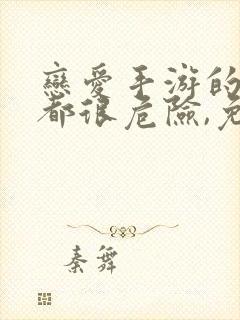 戀愛手游的
都很危險,免
秦舞